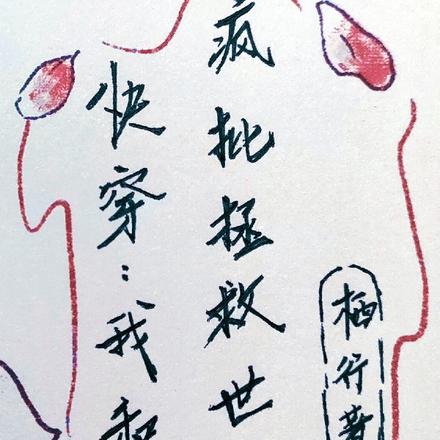 快穿：我和
疯批拯救世
栖行